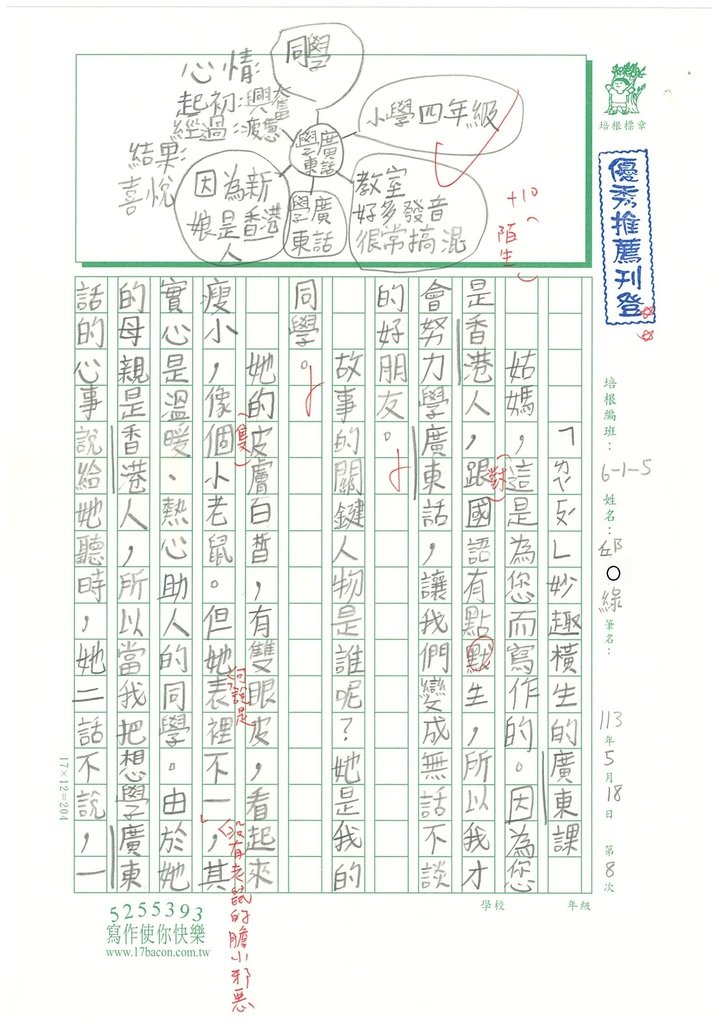 同學
心情:
起初:興奮
經過:疲憊
結果:
喜悅
小學四年級
學廣
東話
教室
好多發音
很常搞混
因為新
娘是香港
人
學廣
東話
+10
(陌生)
培根標章
優秀推薦刊登
培根編班:6-1-5 姓名:邱○綠 筆名: 113年5月18日 第8次
學校 年級
「ㄘㄡˇㄈㄢˇ」妙趣橫生的廣東課
姑媽,這是為您而寫作的。因為您
是香港人,跟國語有點默生,所以我才
(對)
會努力學廣東話,讓我們變成無話不談
的好朋友。
故事的關鍵人物是誰呢?她是我的
同學。
她的皮膚白皙,有雙眼皮,看起來
(隻)
何說是
瘦小,像個小老鼠。但她表裡不一,其
沒有老鼠的膽小邪惡
實心是溫暖、熱心助人的同學。由於她
的母親是香港人,所以當我把想學廣東
話的心事說給她聽時,她二話不說,一
17×12=204
5255393
寫作使你快樂
www.17bacon.com.tw